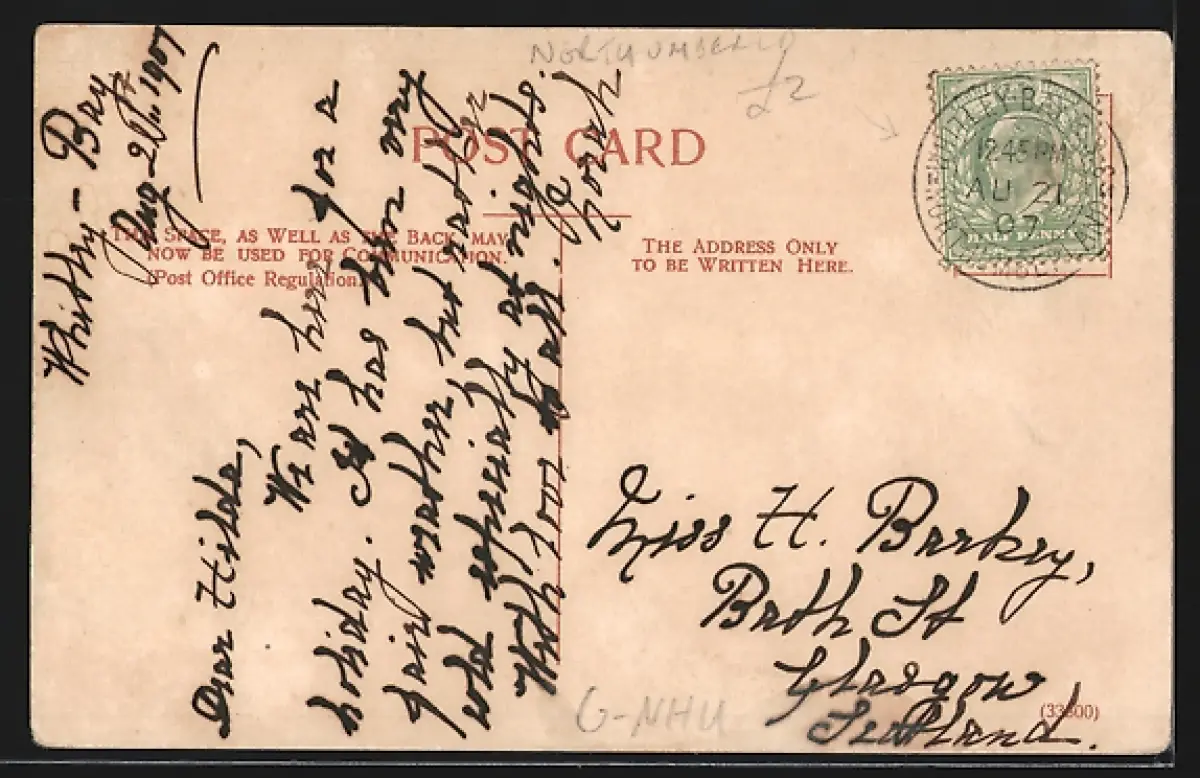 NORTHUMBERLD
£2
POST CARD
THIS SPACE, AS WELL AS THE BACK, MAY
NOW BE USED FOR COMMUNICATION.
(Post Office Regulation.)
THE ADDRESS ONLY
TO BE WRITTEN HERE.
WHITLEY-BAY
12.45 PM
AU 21
07
HALF PENNY
Whitley-Bay
Aug 21st 1907
Dear Hilda,
We are here for a
holiday. It has been very
fair weather, but rather
cold especially at nights.
With love to all.
Norah
Miss H. Barkey,
Bath St
Glasgow
Scotland.
(33800)
G-NHU